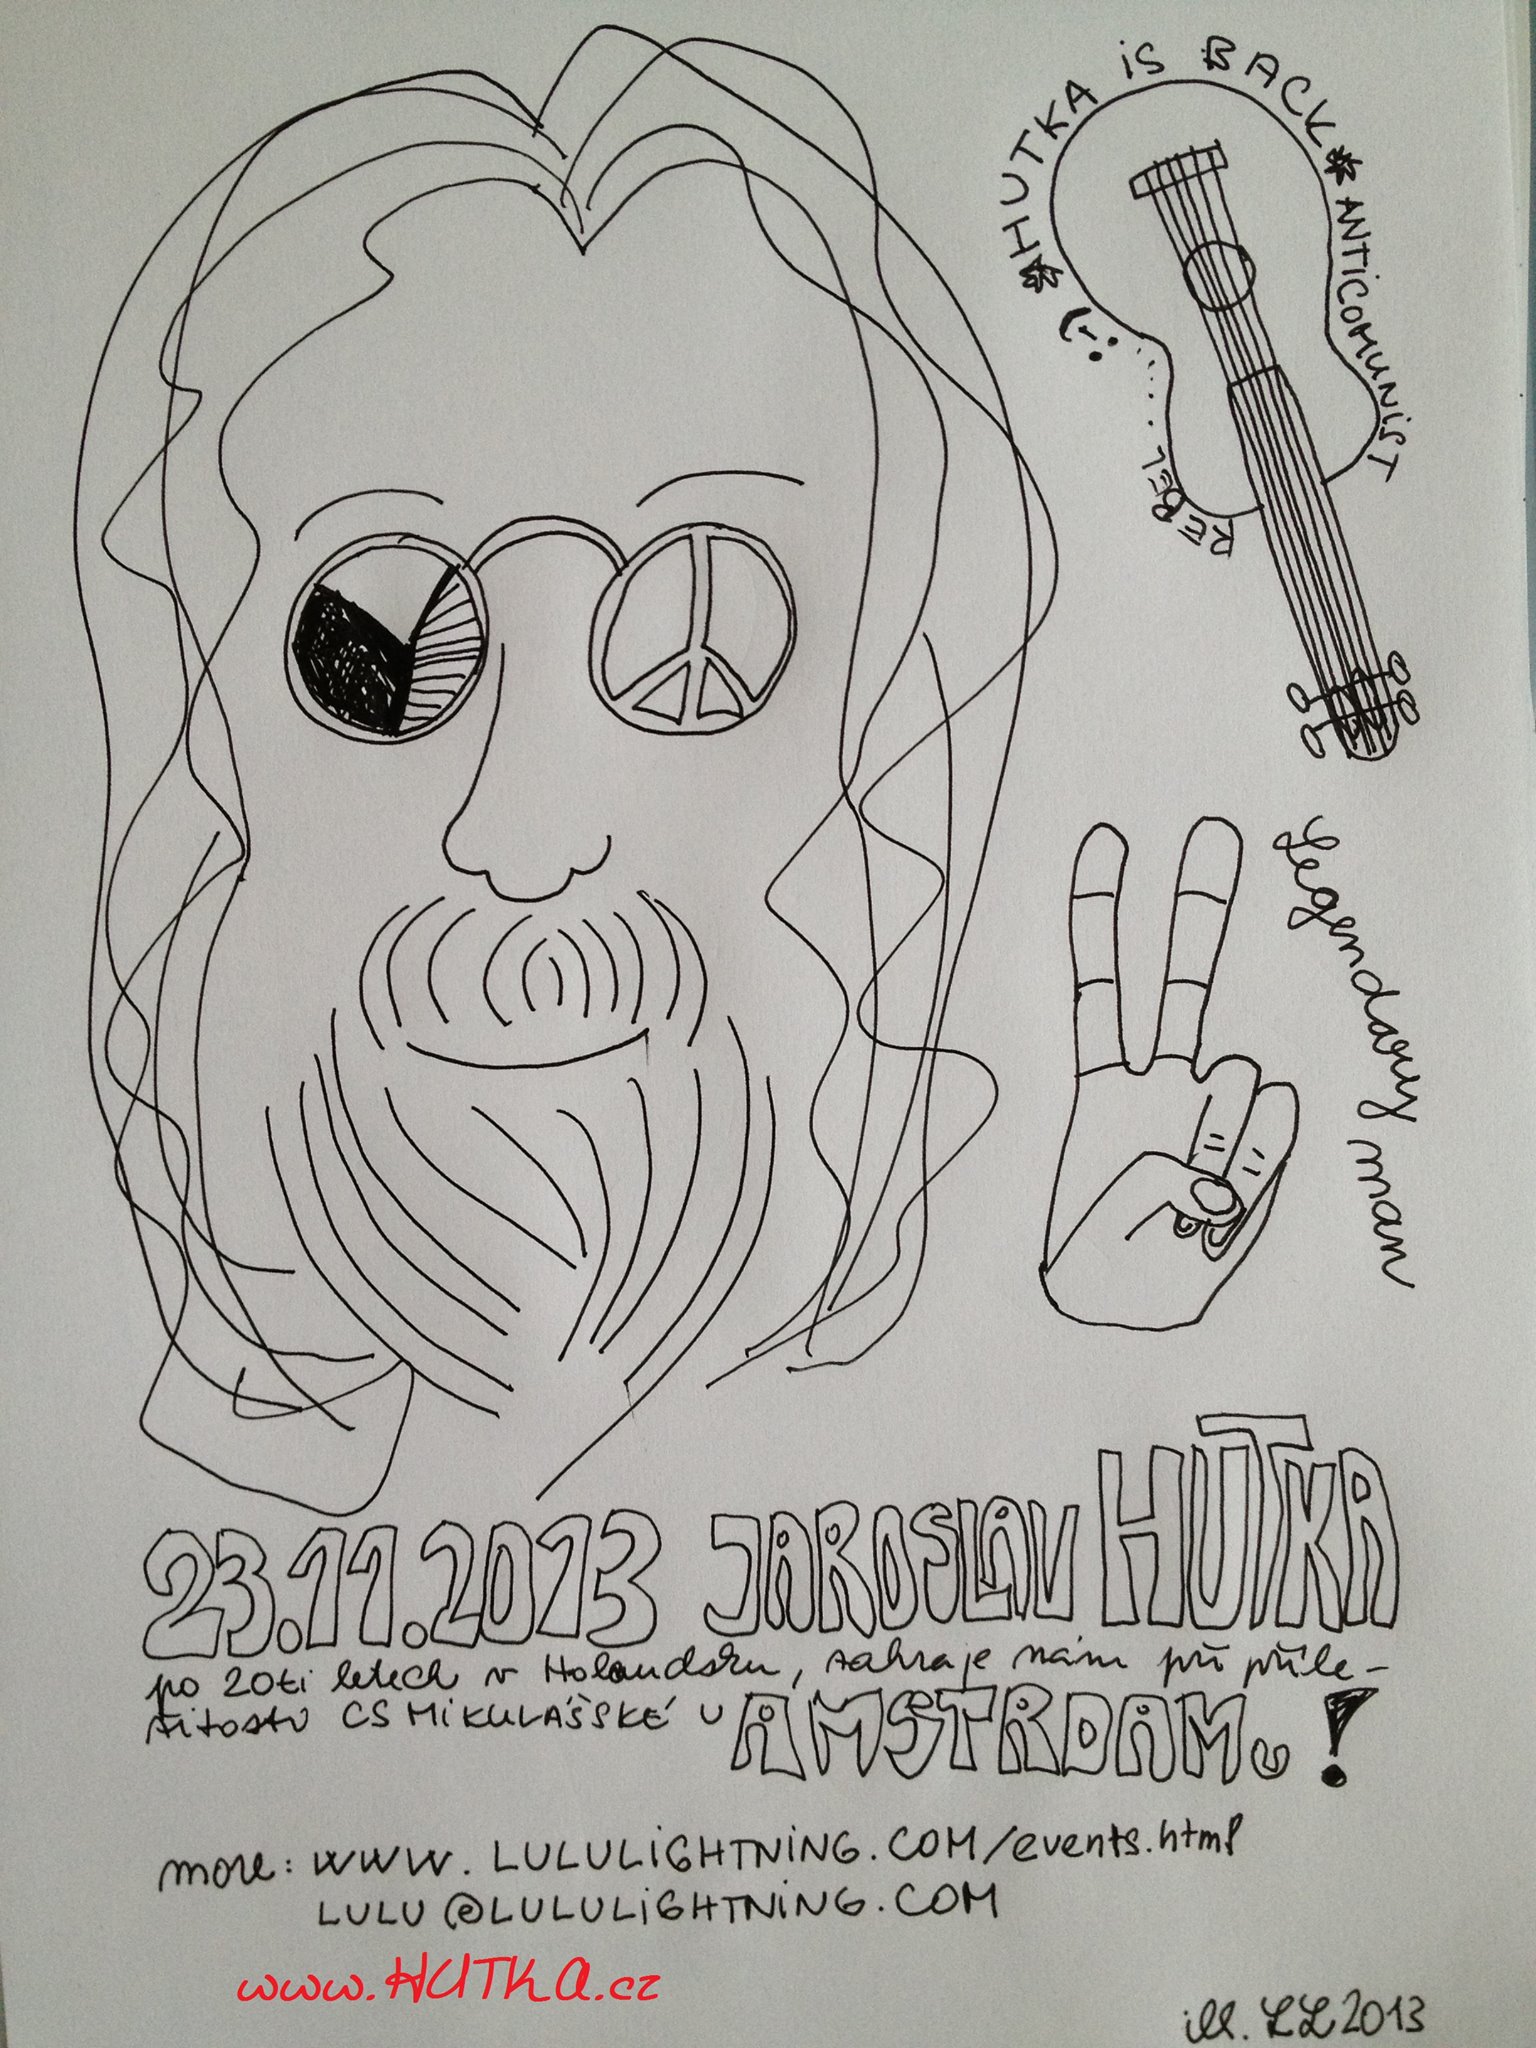 *HUTKA iS BACK*ANTiCOMUNiST
REBEL.....
Legendary man
23.11.2013 JAROSLAV HUTKA
po 20ti letech v Holandsku, zahraje nám při příle-
žitosti CS MiKULÁŠSKÉ v AMSTRDAMu!
more: www.LULULiGHTNiNG.COM/events.html
LULU@LULULiGHTNiNG.COM
www.HUTKA.cz
ill. LL 2013